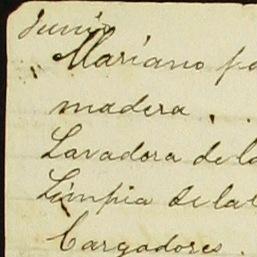 Junio
Mariano po
madera.
Lavadora de la
Limpia de la
Cargadores.